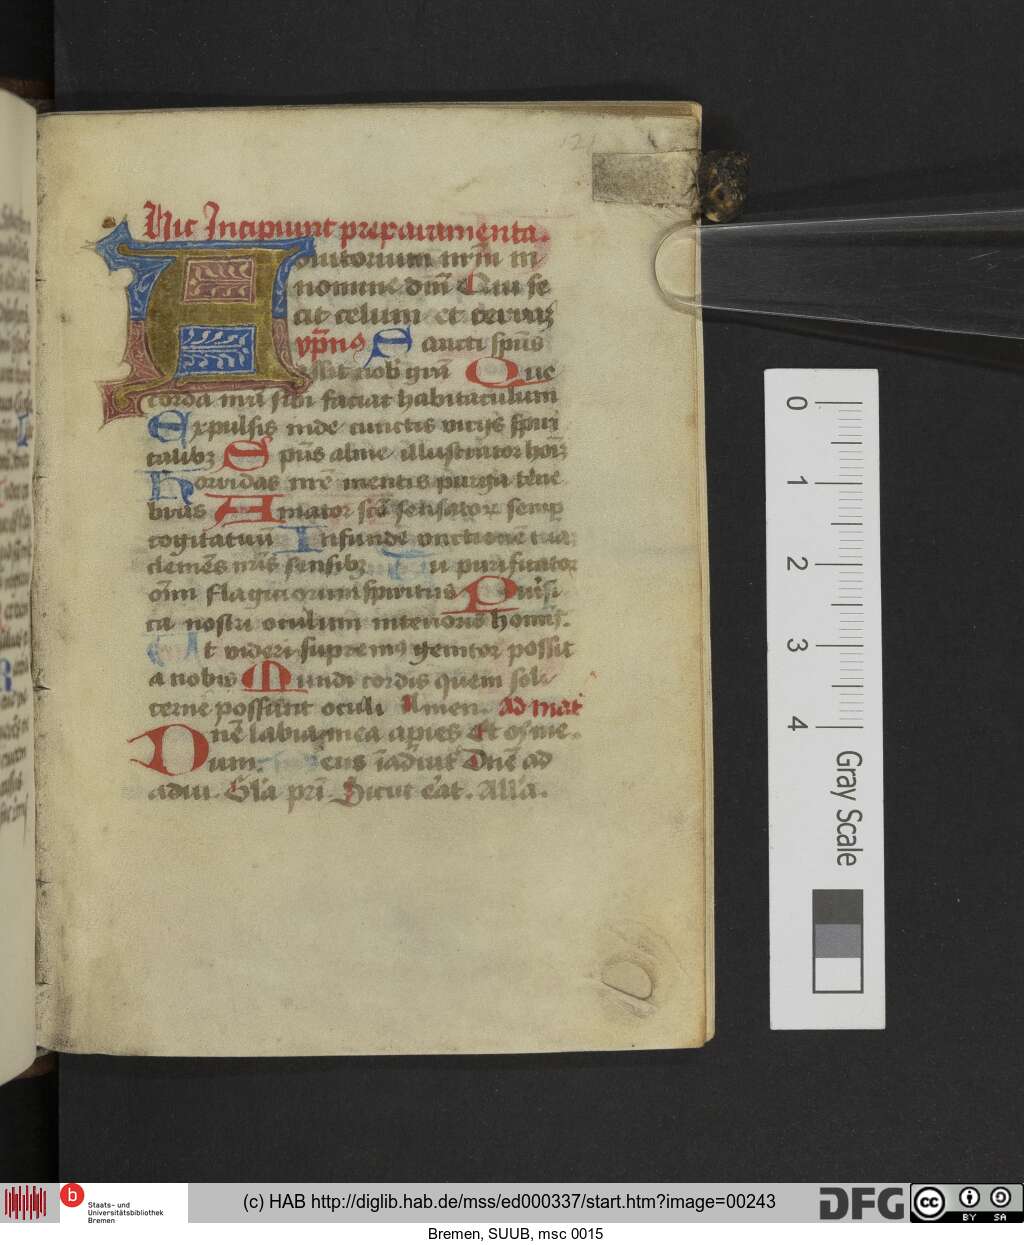 121
Hic Incipiunt preparamenta.
Adiutorium nrm̄ in
nomine dm̄ Qui fe
cit celum et terraꝫ
ypn̄us Sancti spūs
assit nob grā Que
corda nrā sibi faciat habitaculum
Expulsis inde cunctis vitijs spiri
talibꝫ Spūs alme illustrator hoīꝫ
Horridas nrē mentis purga tene
bras Amator scē sensatoꝝ semp
cogitatuū Infunde vnctionē tuā
clemēs nrīs sensibꝫ Tu purificator
oīm flagitiorum spiritus Purifi
ca nostri oculum interioris homīs.
Ut videri supremꝯ genitor possit
a nobis Mundi cordis quem soli
cerne possunt oculi Amen. Ad mat
Dnē labia mea apies Et os me.
Dum. Deus ī adiut Dnē ad
adiu. Glā pri. Sicut erat. Allā.
0
1
2
3
4
Gray Scale
b
Staats- und
Universitätsbibliothek
Bremen
(c) HAB http://diglib.hab.de/mss/ed000337/start.htm?image=00243
DFG
cc
BY SA
Bremen, SUUB, msc 0015